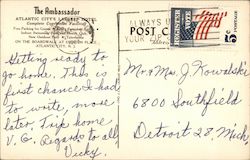 The Ambassador
ATLANTIC CITY'S LARGEST HOTEL
ON THE BOARDWALK
ATLANTIC CITY, N.J.
ALWAYS U
POST C
REGISTER
VOTE
5¢
Getting ready to
go home. This is
first chance I had
to write, more
later. Trip home
V. G. Regards to all
Vicky.
Mr & Mrs. J. Kowalski
6800 Southfield
Detroit 28, Mich.